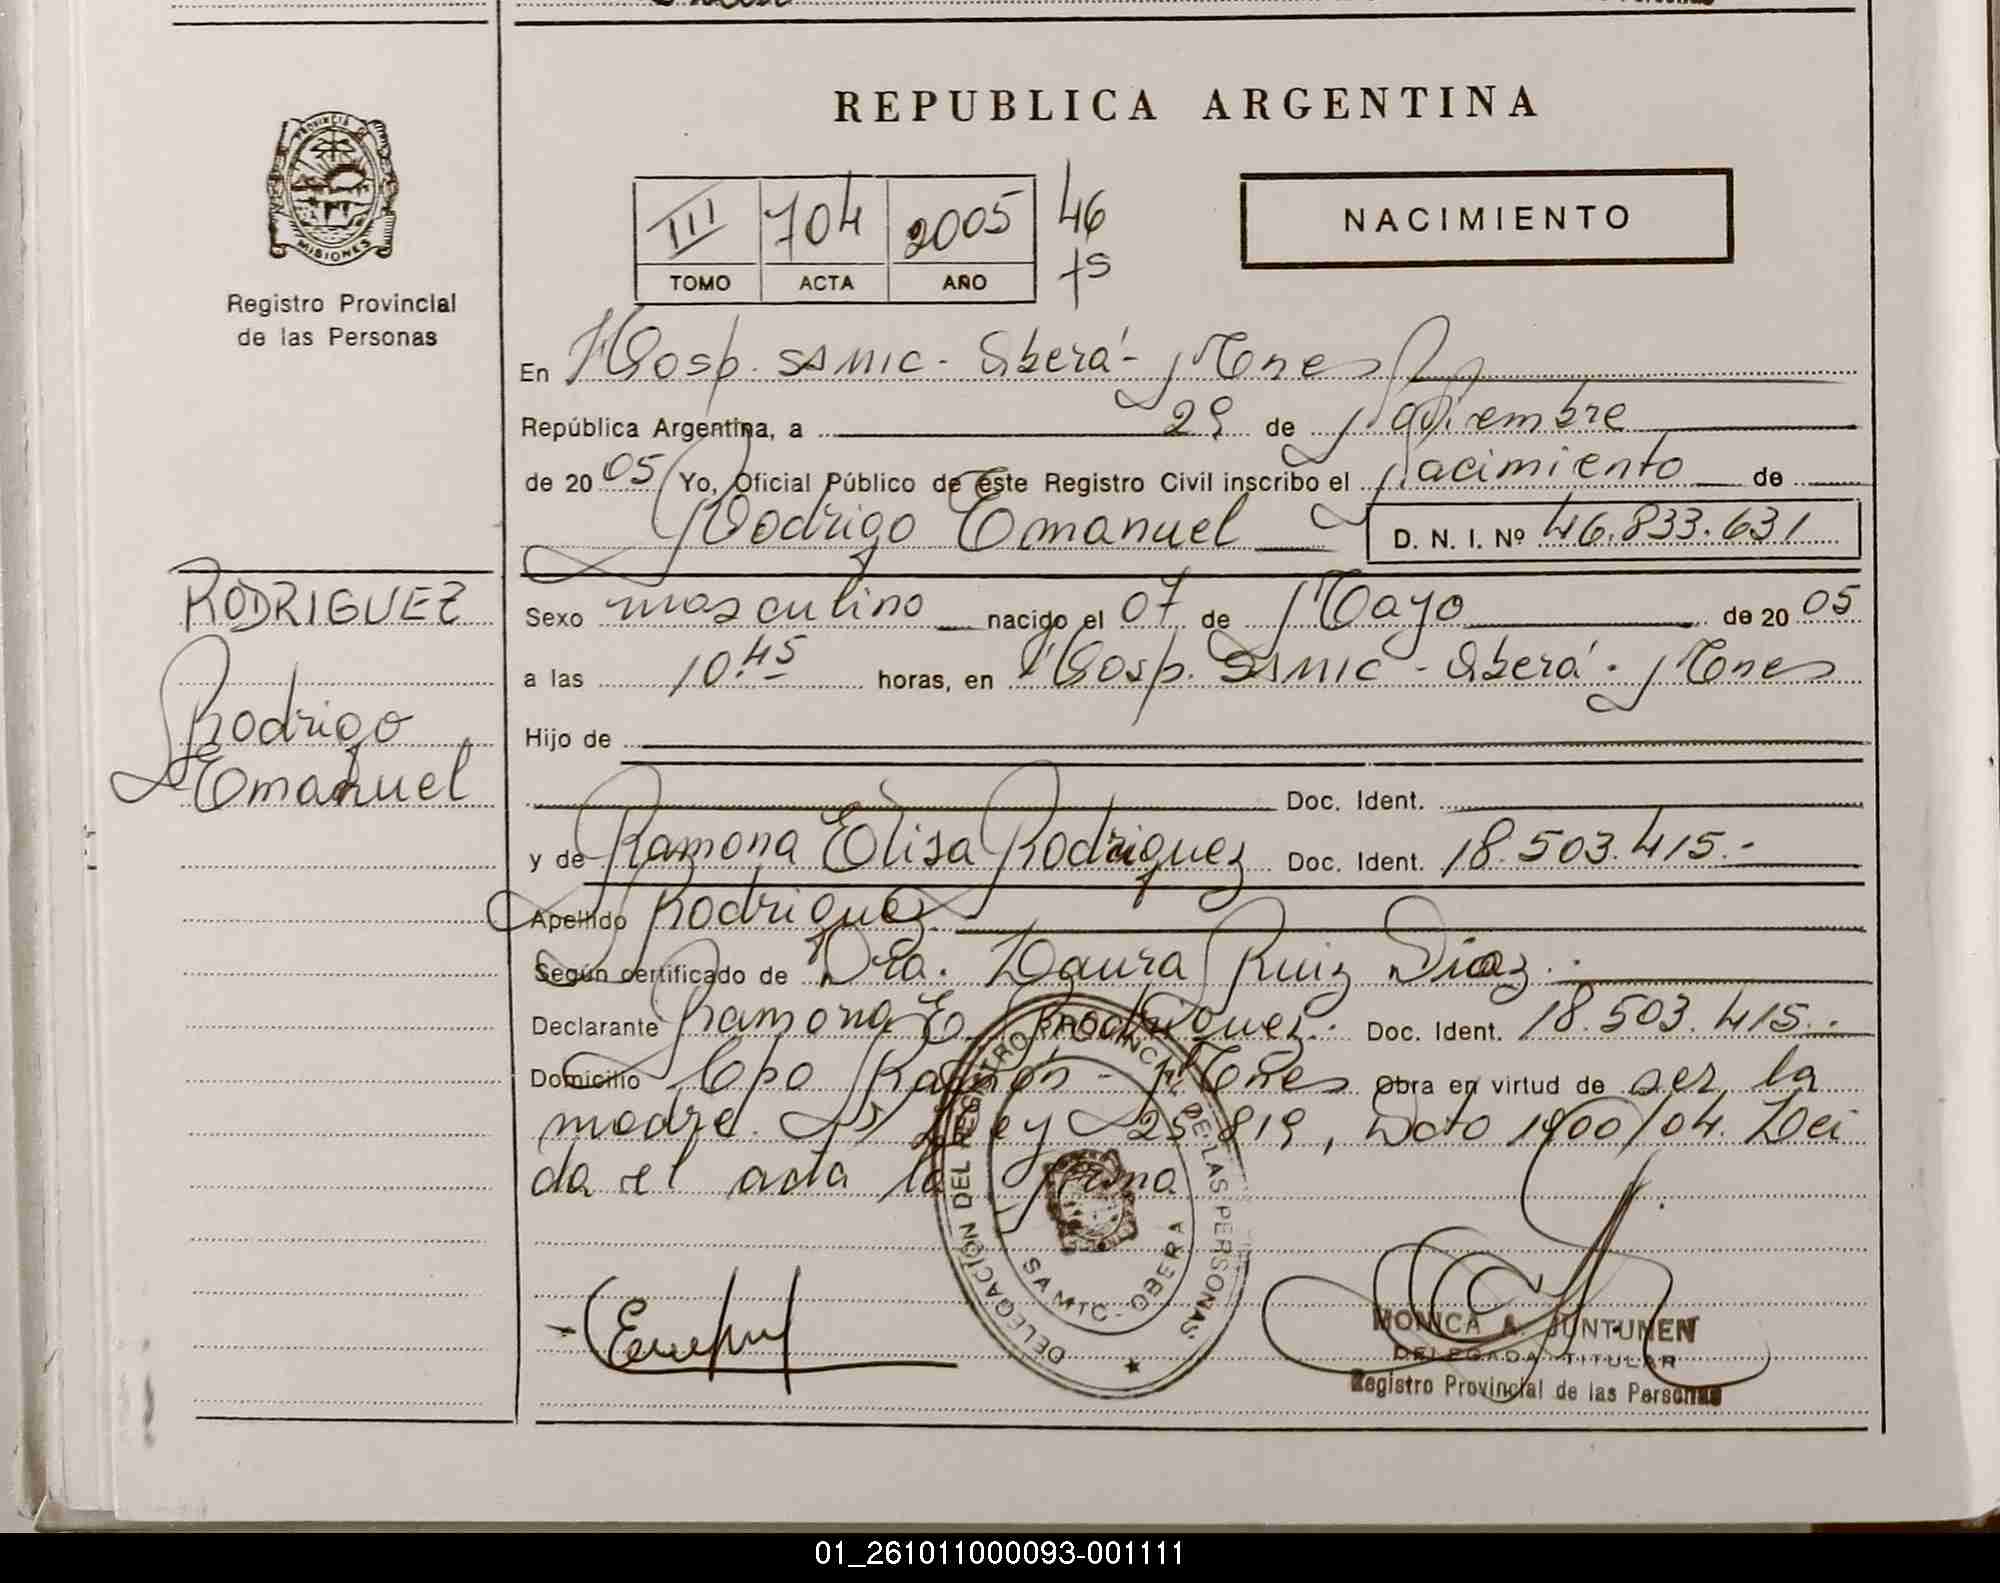 REPUBLICA ARGENTINA
PROVINCIA DE MISIONES
Registro Provincial
de las Personas
III 704 2005 46
TOMO ACTA AÑO
NACIMIENTO
En Hosp. SAMIC - Oberá - Mnes
República Argentina, a 29 de Septiembre
de 20 05 Yo, Oficial Público de este Registro Civil inscribo el Nacimiento de
Rodrigo Emanuel D. N. I. Nº 46.833.631
RODRIGUEZ
Rodrigo
Emanuel
Sexo masculino nacido el 07 de Mayo de 20 05
a las 10.45 horas, en Hosp. SAMIC - Oberá - Mnes
Hijo de
Doc. Ident.
y de Ramona Elisa Rodriguez Doc. Ident. 18.503.415.-
Apellido Rodriguez
Según certificado de Dra. Laura Ruiz Diaz.
Declarante Ramona E. Rodriguez. Doc. Ident. 18.503.415.-
Domicilio Cpo Ramón - Mnes Obra en virtud de ser la
madre. Ley 25819, Dcto 1900/04. Lei
da el acta la firma
DELEGACIÓN DEL REGISTRO PROVINCIAL DE LAS PERSONAS
OBERA
MONICA A. JUNTUNEN
DELEGADA TITULAR
Registro Provincial de las Personas
01_261011000093-001111